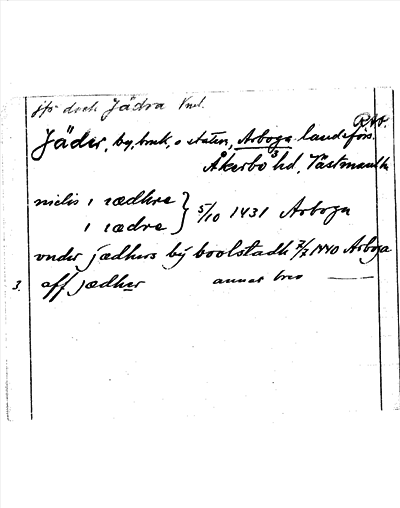 jfr dock Jädra Vml.
RAP.
Jäder, by, bruk, o station, Arboga landsförs.
Åkerbo hd, Västmanl
niclis i iædhre
i iædre } 5/10 1431 Arboga
vnder jædhers bÿ boolstadh 7/7 1440 Arboga
3. aff jædher annat brev